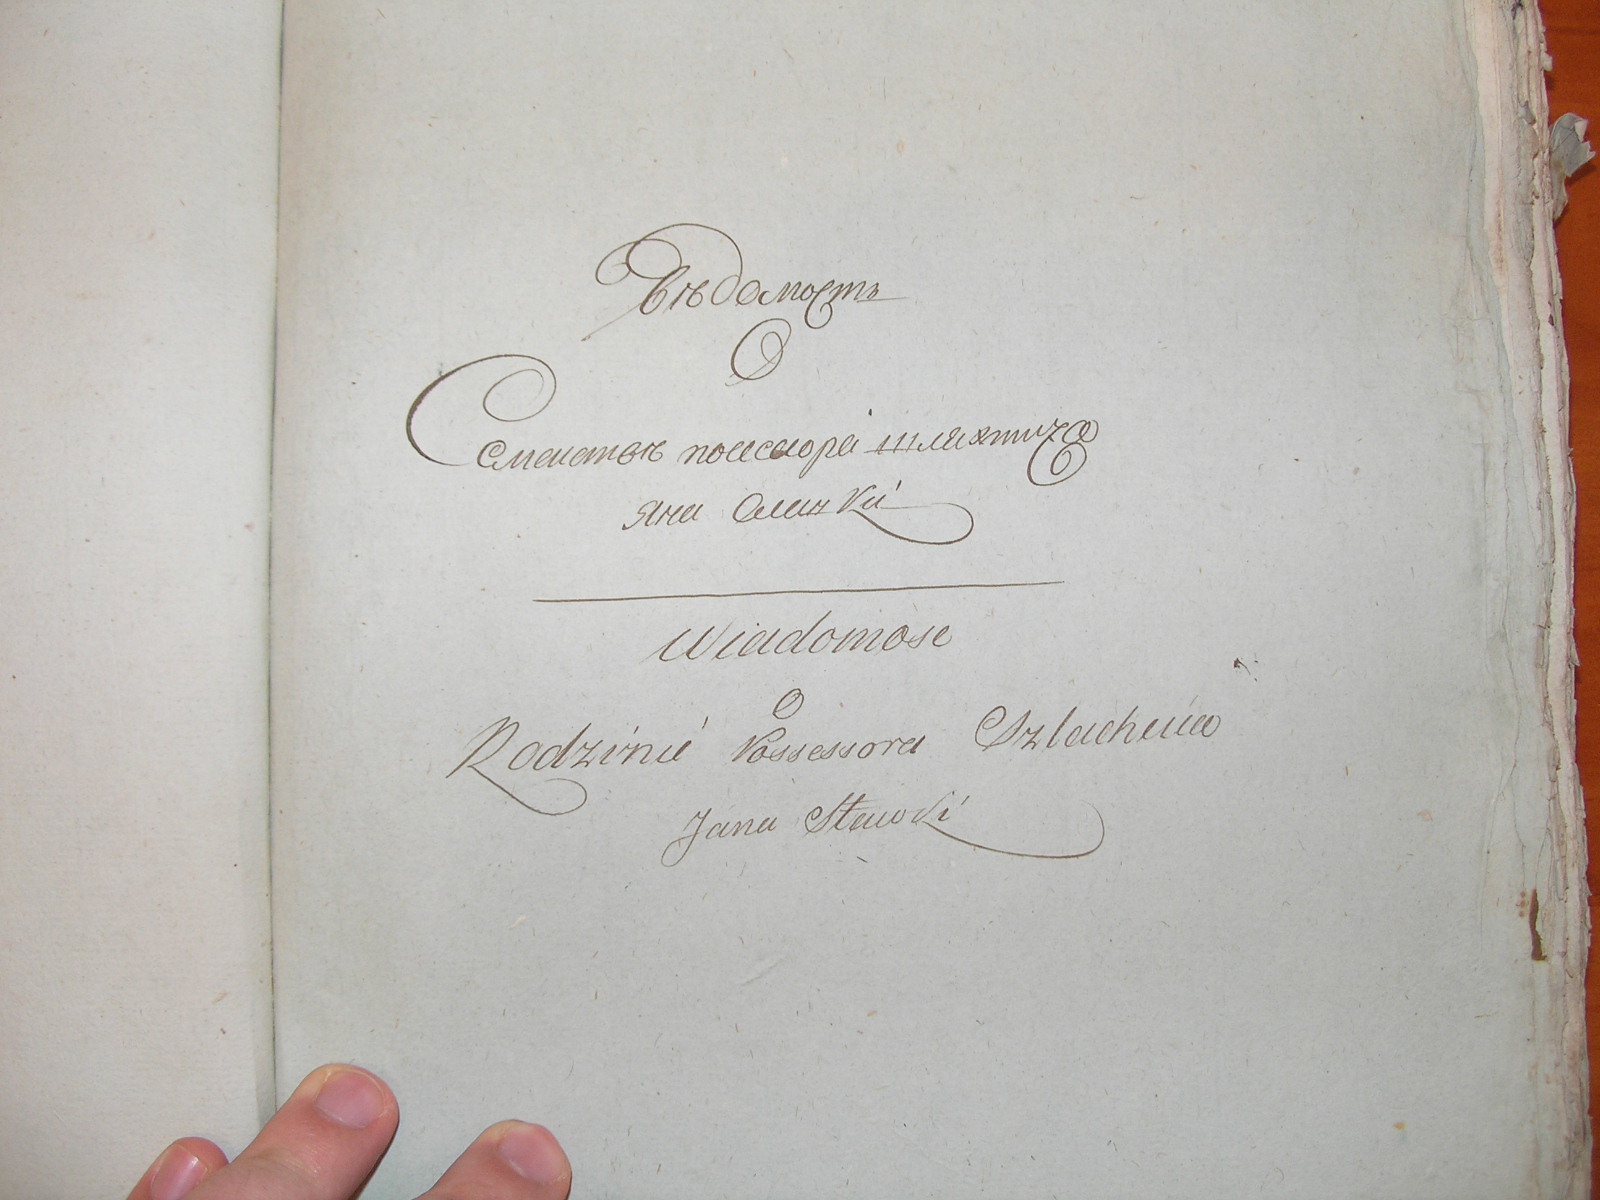 Вѣдомость
О
Семействѣ посесора шляхтича
Яна
Wiadomosc
O
Rodzinie Possessora Szlachcica
Jana